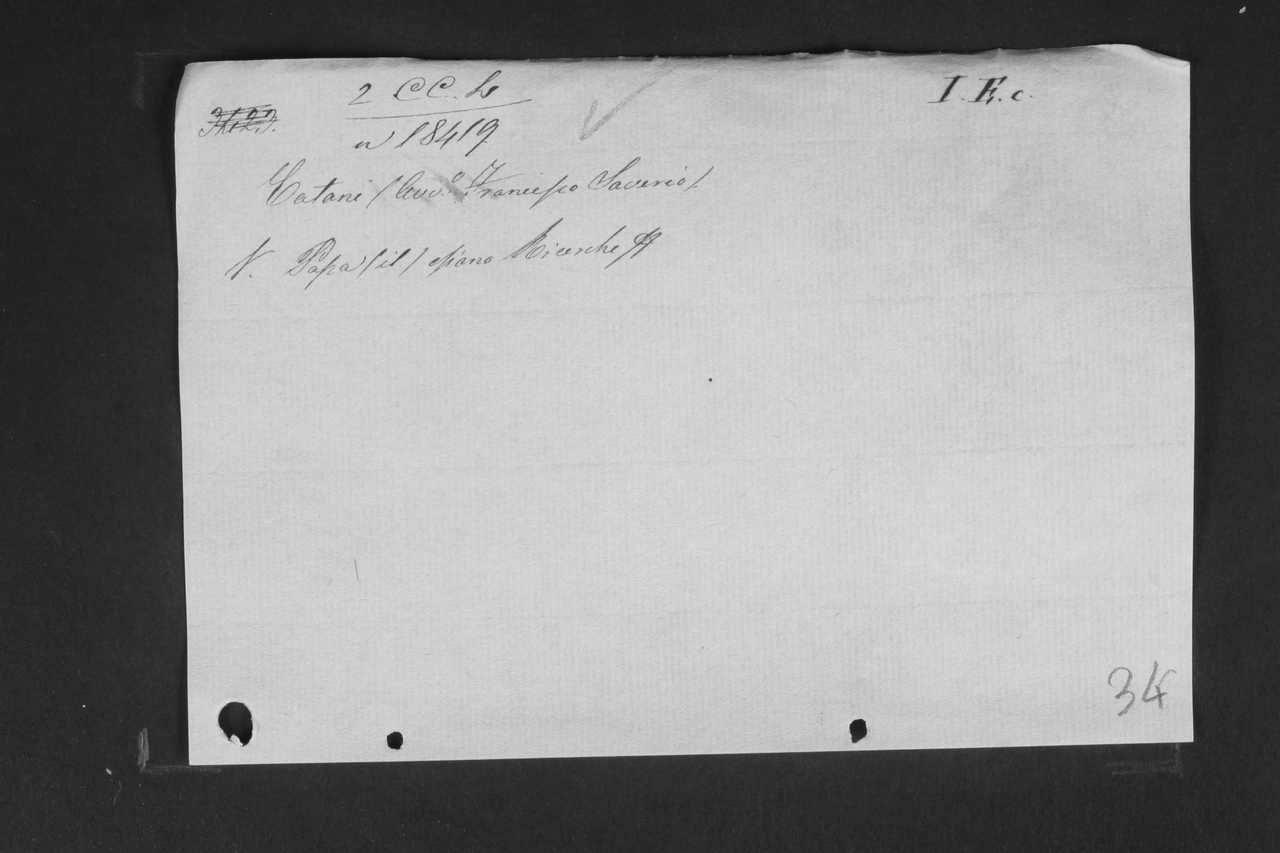 2 CC. L
I. E. c.
n 18419
Catani (Avv.º Francesco Saverio)
V. Papa (il) ossiano Ricerche &
34